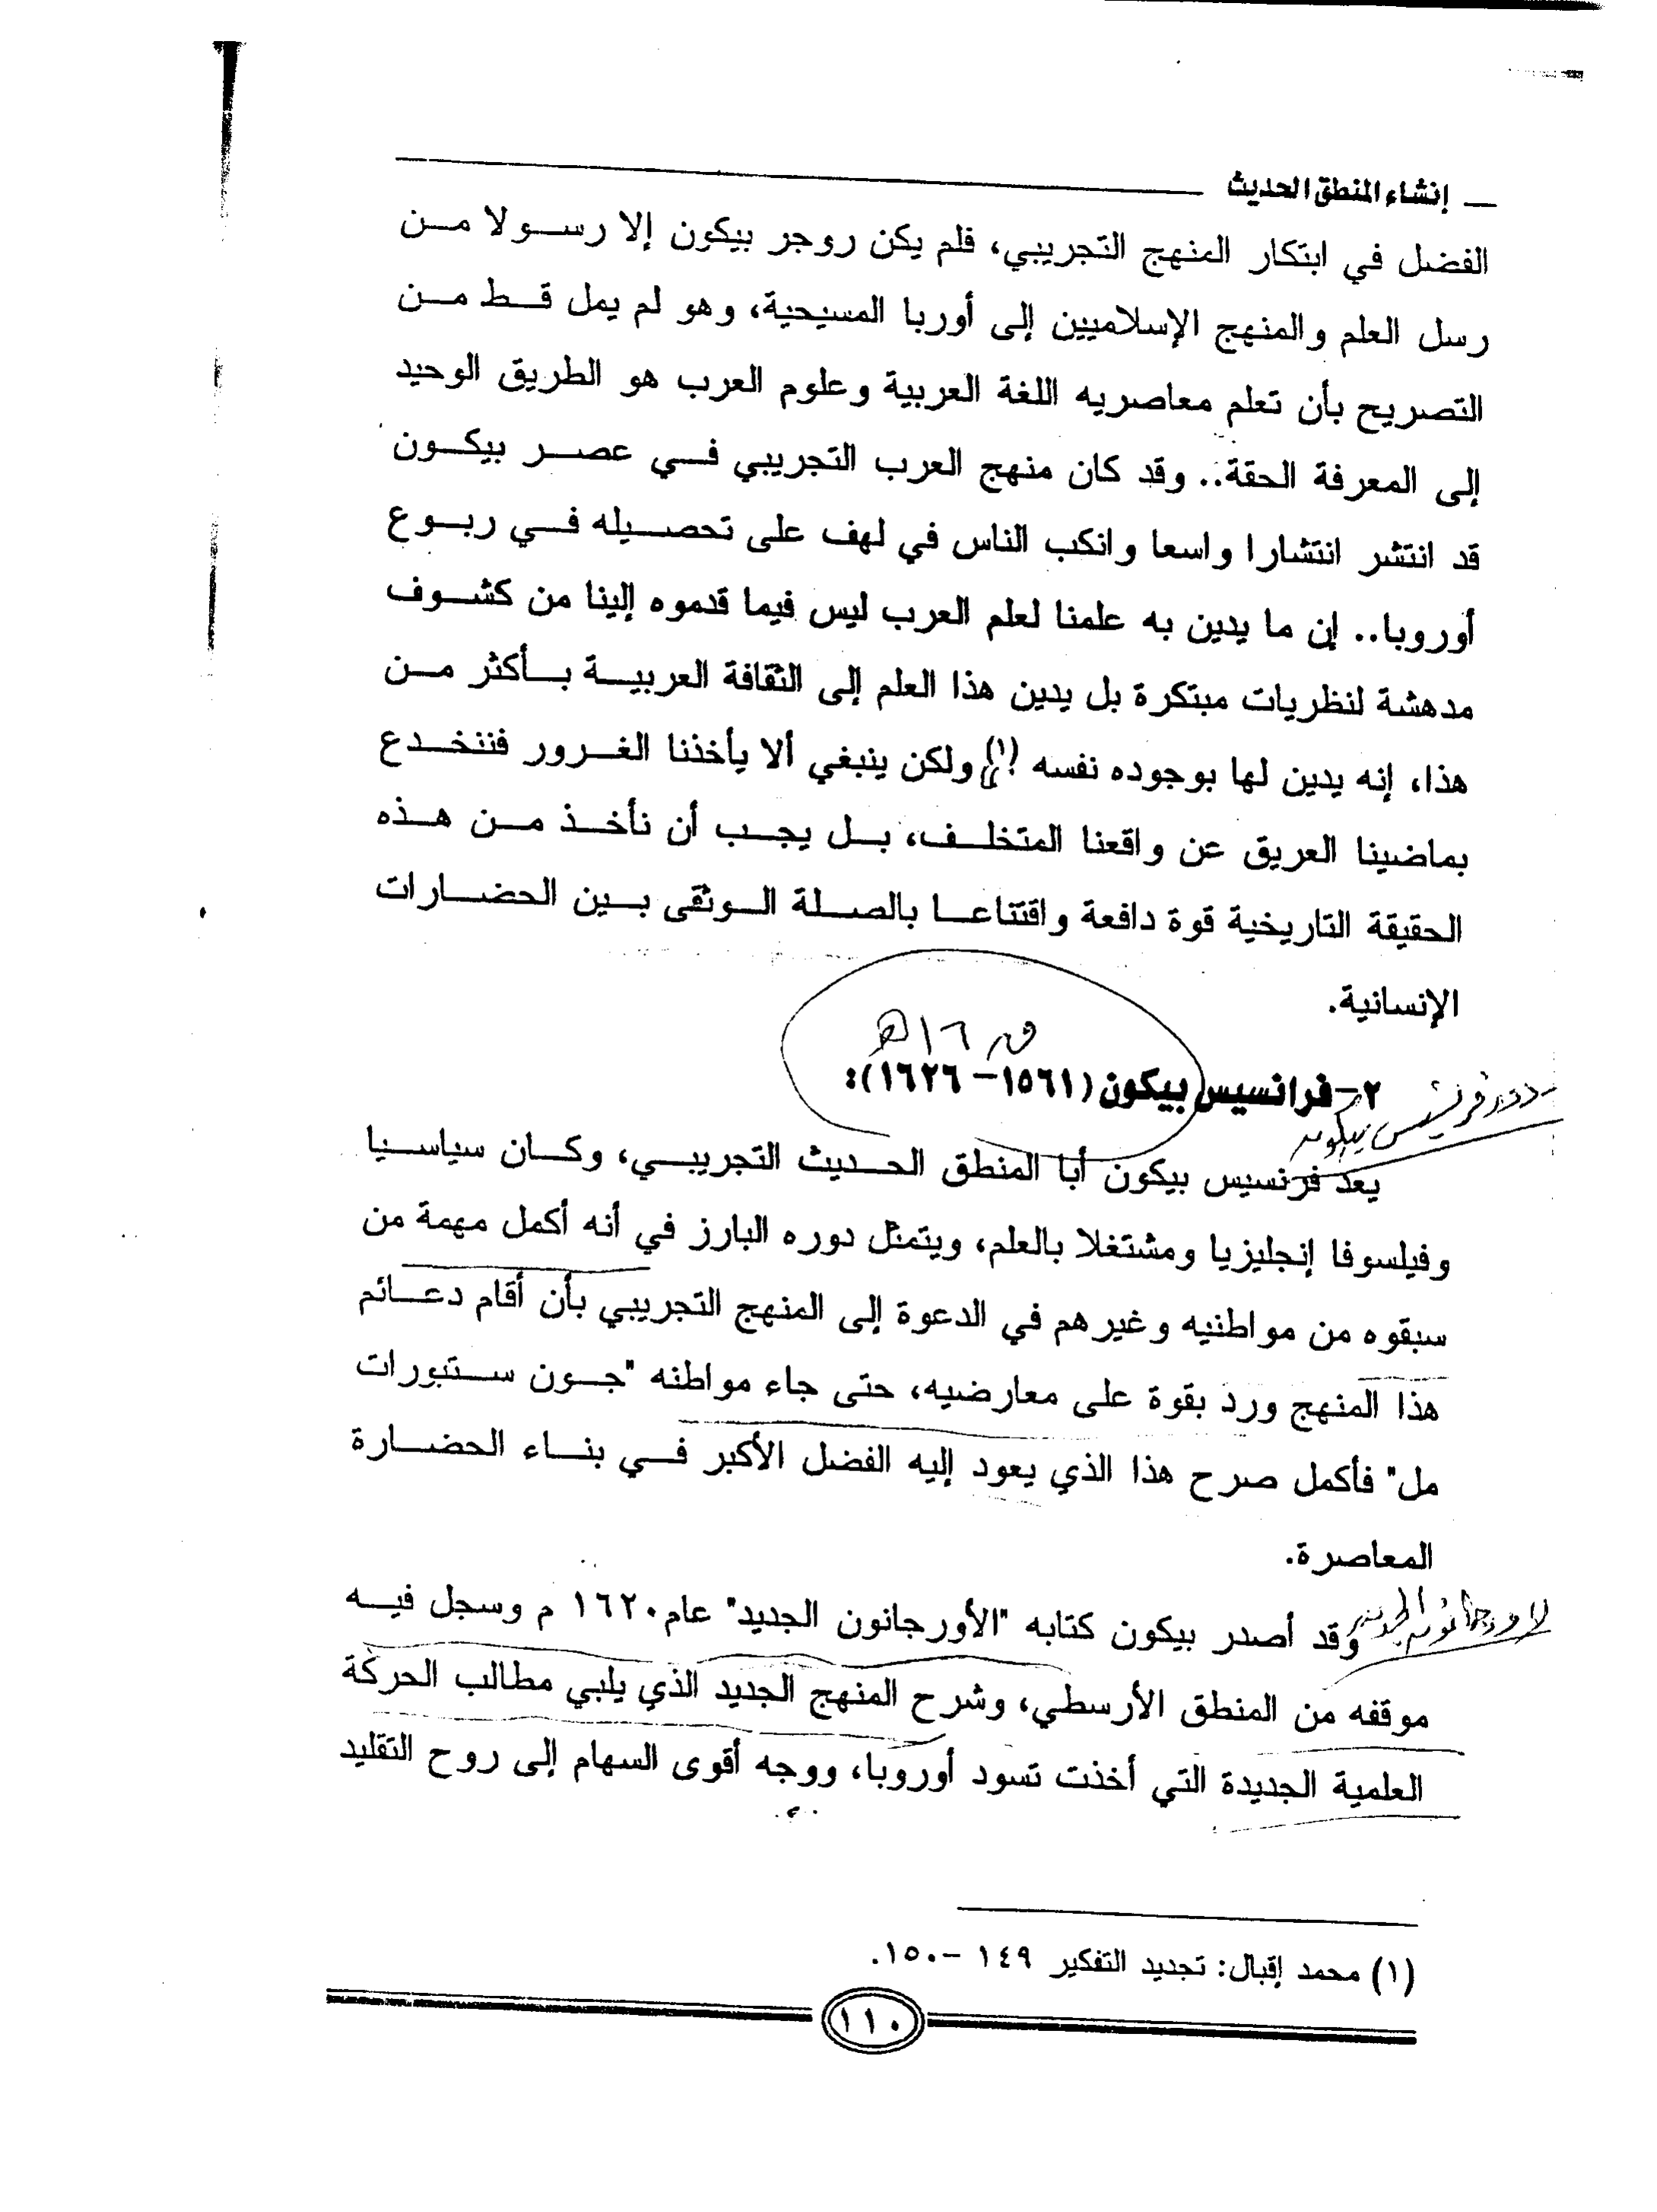 إنشاء المنطق الحديث
الفضل في ابتكار المنهج التجريبي، فلم يكن روجر بيكون إلا رسولا من
رسل العلم والمنهج الإسلاميين إلى أوربا المسيحية، وهو لم يمل قط من
التصريح بأن تعلم معاصريه اللغة العربية وعلوم العرب هو الطريق الوحيد
إلى المعرفة الحقة.. وقد كان منهج العرب التجريبي في عصر بيكون
قد انتشر انتشارا واسعا وانكب الناس في لهف على تحصيله في ربوع
أوروبا.. إن ما يدين به علمنا لعلم العرب ليس فيما قدموه إلينا من كشوف
مدهشة لنظريات مبتكرة بل يدين هذا العلم إلى الثقافة العربية بأكثر من
هذا، إنه يدين لها بوجوده نفسه (١) ولكن ينبغي ألا يأخذنا الغرور فننخدع
بماضينا العريق عن واقعنا المتخلف، بل يجب أن نأخذ من هذه
الحقيقة التاريخية قوة دافعة واقتناعا بالصلة الوثقى بين الحضارات
الإنسانية.
١٦
٢- فرانسيس بيكون (١٥٦١- ١٦٢٦):
دور فرنسيس بيكون
يعد فرنسيس بيكون أبا المنطق الحديث التجريبي، وكان سياسيا
وفيلسوفا إنجليزيا ومشتغلا بالعلم، ويتمثل دوره البارز في أنه أكمل مهمة من
سبقوه من مواطنيه وغيرهم في الدعوة إلى المنهج التجريبي بأن أقام دعائم
هذا المنهج ورد بقوة على معارضيه، حتى جاء مواطنه "جون ستبورات
مل" فأكمل صرح هذا الذي يعود إليه الفضل الأكبر في بناء الحضارة
المعاصرة.
الاورجانون الجديد
وقد أصدر بيكون كتابه "الأورجانون الجديد" عام ١٦٢٠ م وسجل فيه
موقفه من المنطق الأرسطي، وشرح المنهج الجديد الذي يلبي مطالب الحركة
العلمية الجديدة التي أخذت تسود أوروبا، ووجه أقوى السهام إلى روح التقليد
(١) محمد إقبال: تجديد التفكير ١٤٩ -١٥٠.
١١٠